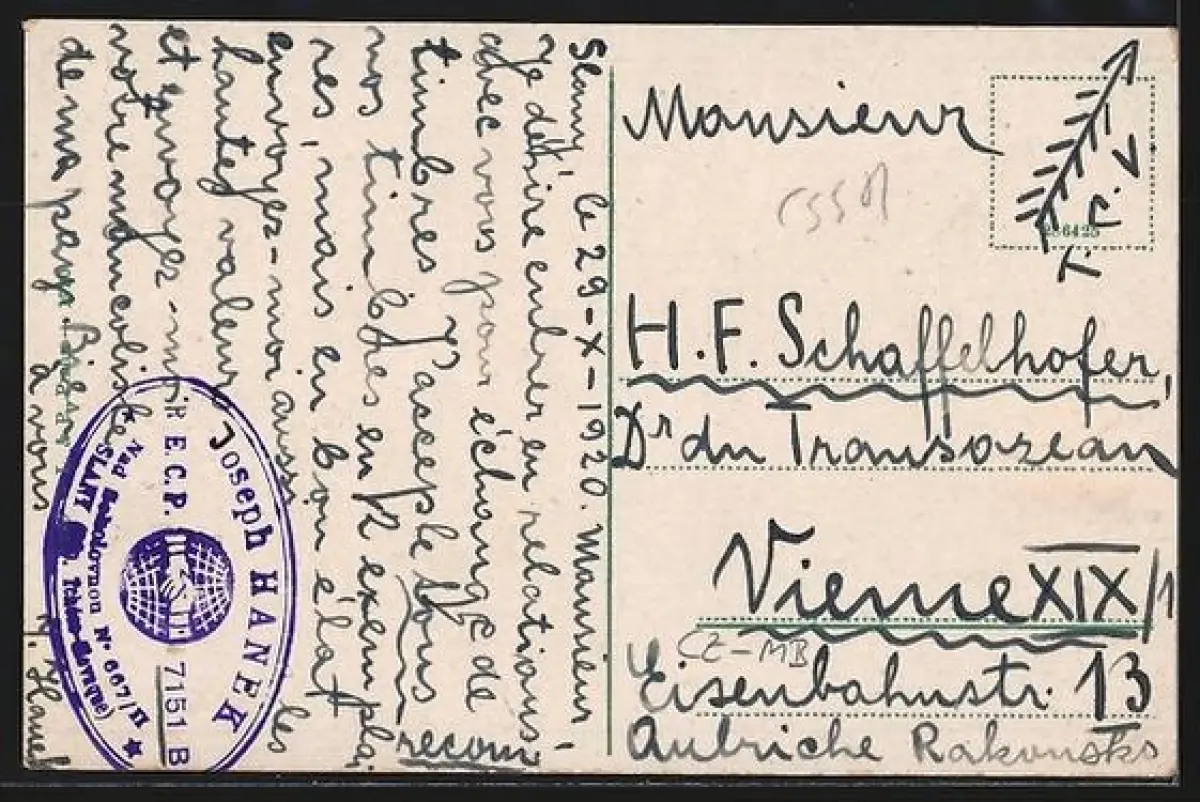 Slaný, le 29-X-1920. Monsieur,
Je désire entrer en relations
avec vous pour échange de
timbres. J'accepte tous
nos timbres en R exemplai
res, mais en bon état
envoyez-moi aussi les
hautes valeurs
et envoyez-moi
votre mancoliste
de ma pays.
à vous
recom
J. Hanek
Joseph HANEK
R.E.C.P. 7151 B
Nad N° 667/II
SLANÝ
Monsieur
T.C.V.
236423
H.F. Schaffelhofer,
Dr du Transozean
Vienne XIX/1
CZ-MB
Eisenbahnstr. 13
Autriche Rakousko